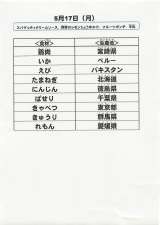 5月17日（月）
<食材> <産地>
鶏肉 宮崎県
いか ペルー
えび パキスタン
たまねぎ 北海道
にんじん 徳島県
ぱせり 千葉県
きゃべつ 東京都
きゅうり 群馬県
れもん 愛媛県